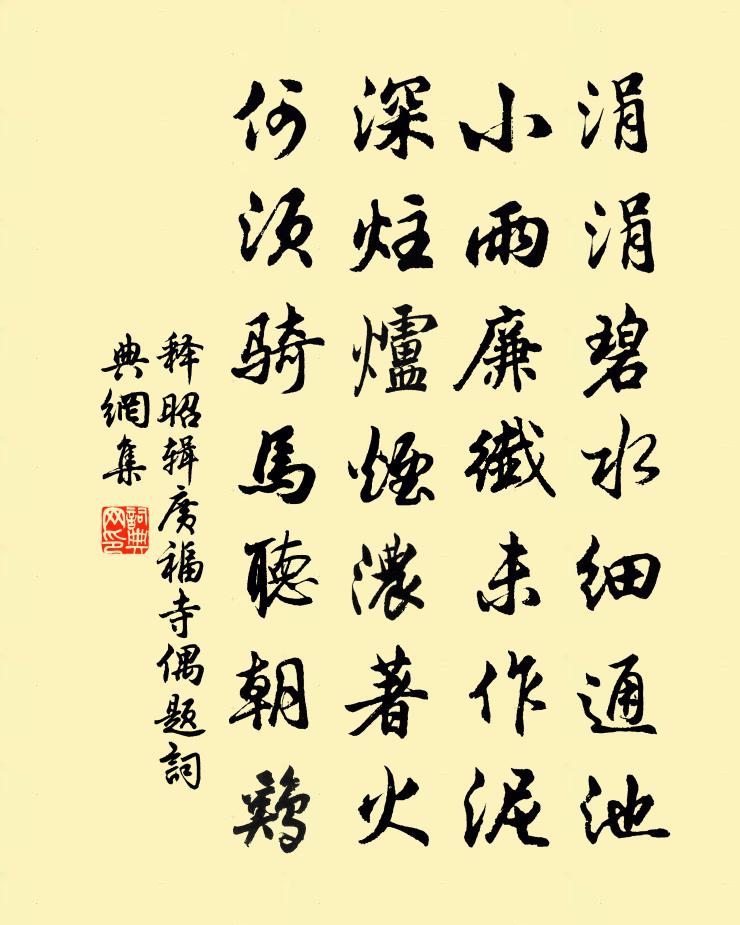 涓涓碧水细通池
小雨廉纖未作泥
深炷爐煙濃著火
何须騎馬聽朝鷄
释昭辑廣福寺偶题詞
典網集
詞典
网印